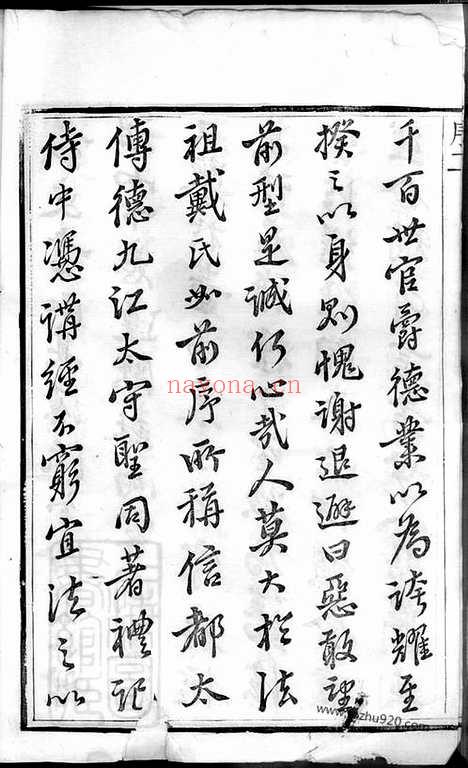 千百世官爵德業以為誇耀至
揆之以身則愧謝退避曰惡敢望
前型是誠何心哉人莫大於法
祖戴氏如前序所稱信都太
傅德九江太守聖同著禮記
侍中憑講經不窮宜法之以
nayona.cn